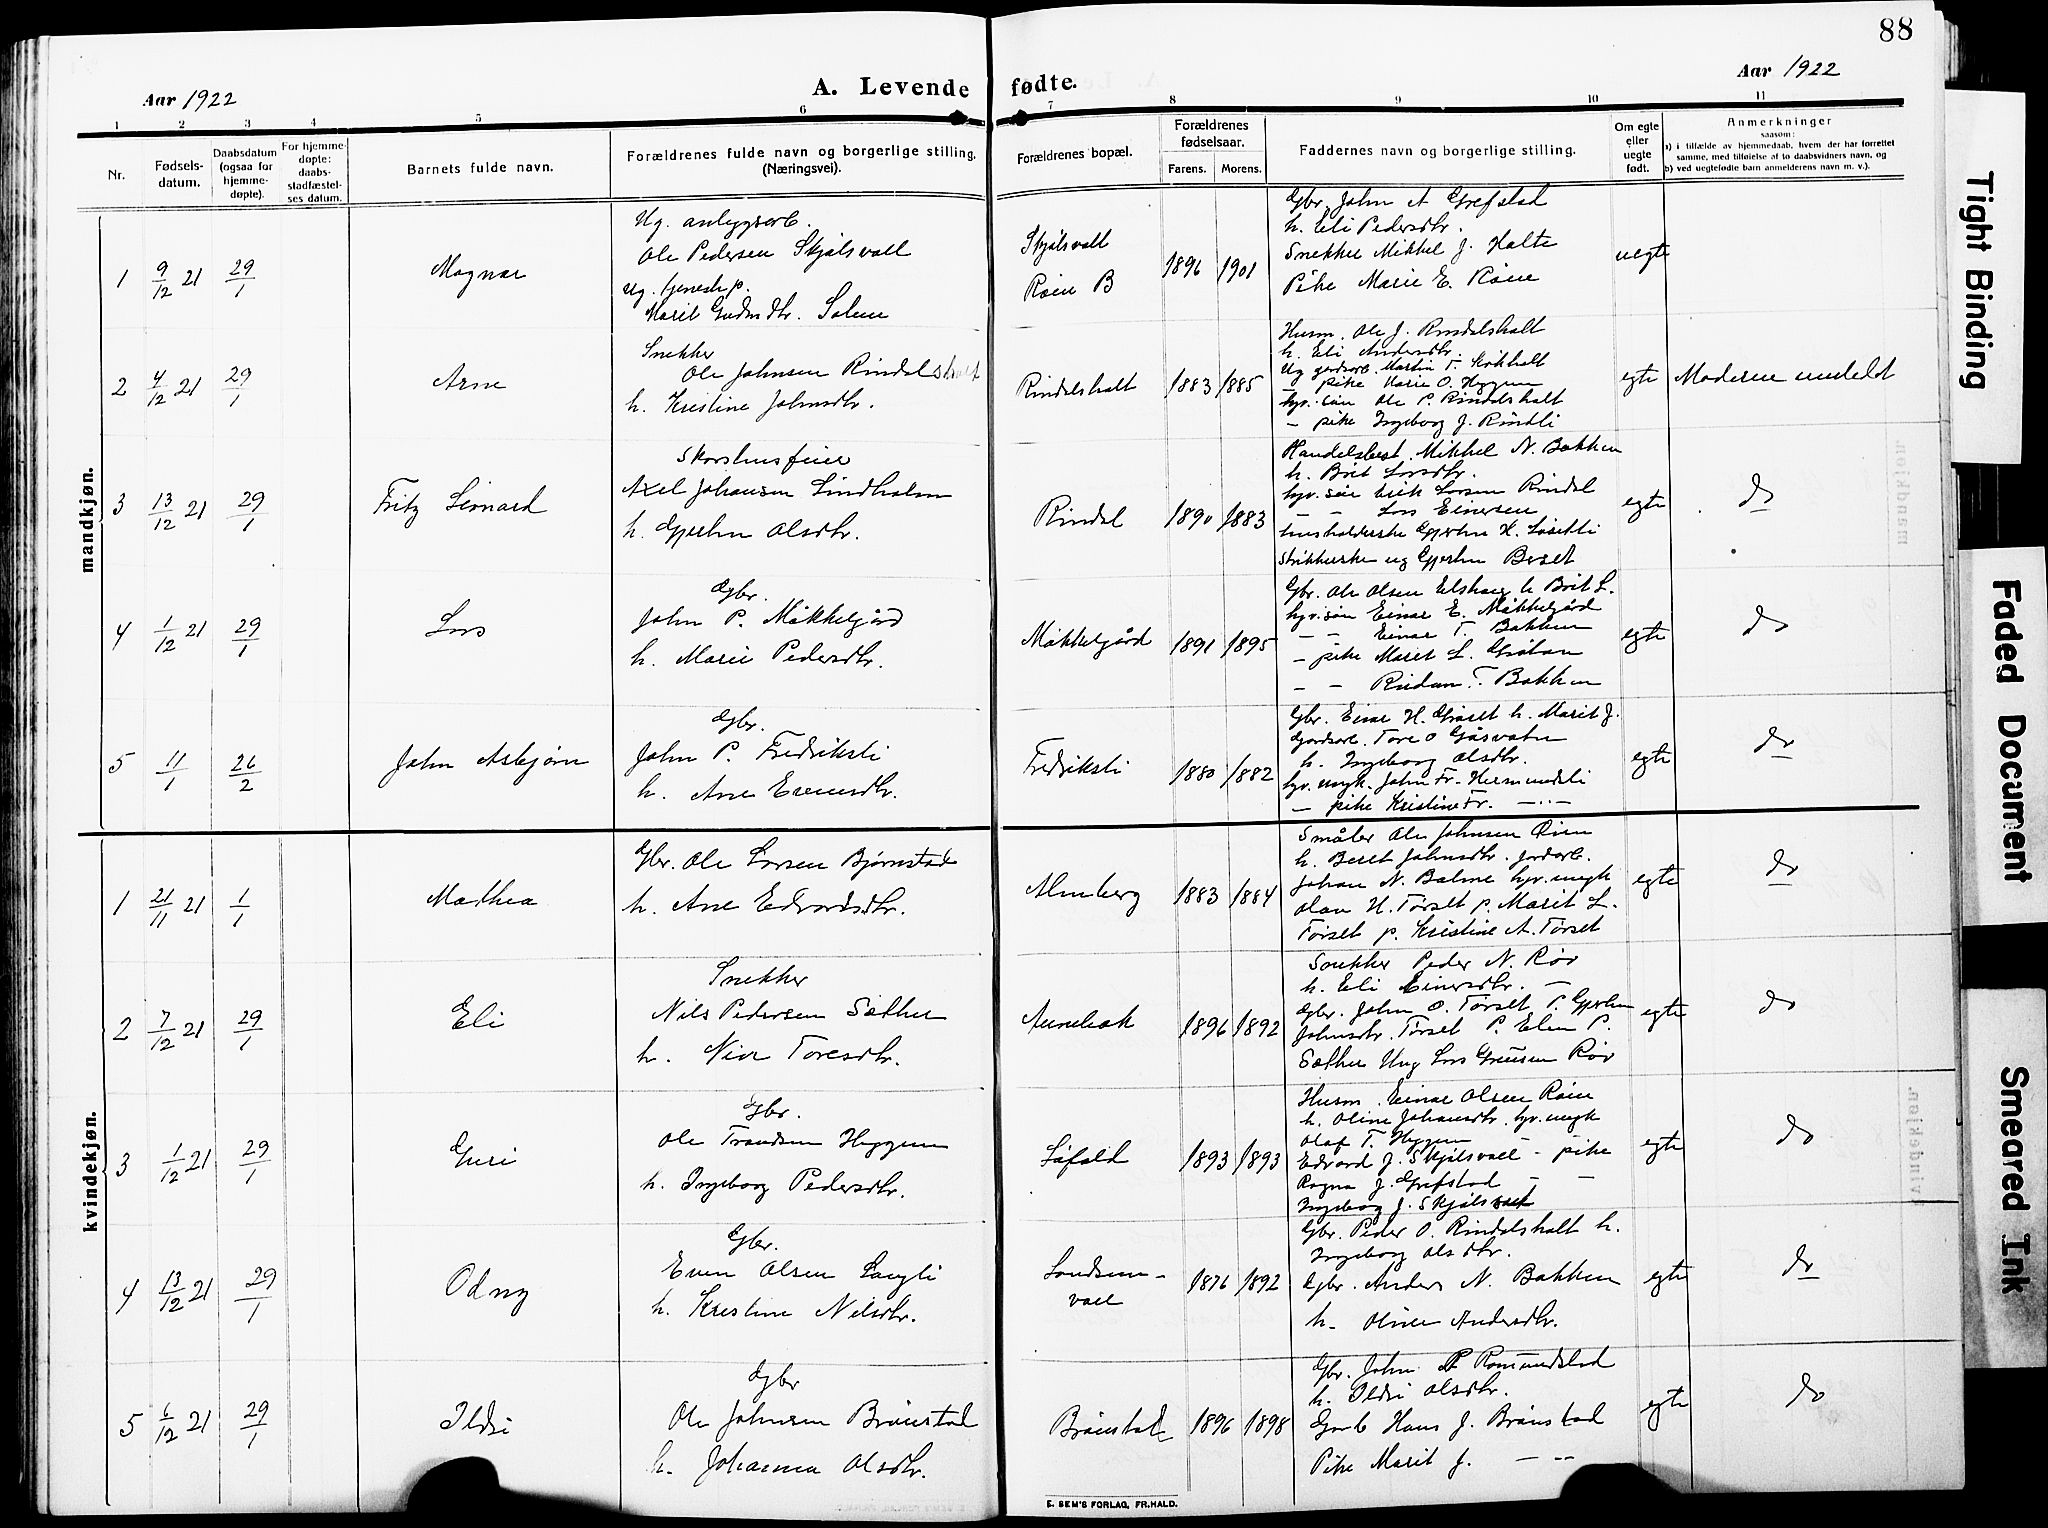 88
Aar 1922
A. Levende fødte.
Aar 1922
1 2 3 4 5 6 7 8 9 10 11
Nr.
Fødsels-
datum.
Daabsdatum
(ogsaa for
hjemme-
døpte).
For hjemme-
døpte:
daabs-
stadfæstel-
ses datum.
Barnets fulde navn.
Forældrenes fulde navn og borgerlige stilling.
(Næringsvei).
Forældrenes bopæl.
Forældrenes
fødselsaar.
Farens. Morens.
Faddernes navn og borgerlige stilling.
Om egte
eller
uegte
født.
Anmerkninger
saasom:
a) i tilfælde av hjemmedaab, hvem der har forrettet
samme, med tilføielse af to daabsvidners navn, og
b) ved uegtefødte barn anmelderens navn m. v.).
mandkjøn.
1 9/12 21 29/1 Magnar
Ug. anlegsarb.
Ole Pedersen Skjølsvoll
Ug. tjenestp.
Marit Gudmdtr. Solem
Skjølsvoll
Røen B
1896 1901
Gbr. John A Grefstad
h. Eli Pedersdtr.
Snekker Mikkel J. Halte
Pike Marie E. Røen
uegte
2 4/12 21 29/1 Arne
Snekker
Ole Johnsen Rindalsholt
h. Kristine Johnsdtr.
Rindalsholt
1883 1885
Husm. Ole J. Rindalsholt
h. Eli Andersdtr.
Ug gardsarb. Martin T. Kokholt
— pike Marie O. Hyggen
hjv. søn Ole P. Rindalsholt
— pike Ingeborg J. Rindli
egte
Moderen innledt
3 13/12 21 29/1 Fritz Leonard
Skorstensfeier
Axel Johansen Lindholm
h. Gjertru Olsdtr.
Rindal
1890 1883
Handelsbest. Mikkel N. Bakken
h. Brit Larsdtr.
hjv. søn Erik Larsen Rindal
— — Lars Einersen
husholderske Gjertru H. Løsetli
Strikkerske ug Gjertru Bolset
egte
do
4 1/12 21 29/1 Lars
Gbr.
John P. Møkkelgård
h. Marie Pedersdtr.
Møkkelgård
1891 1895
Gbr. Ole Olsen Elshaug h Brit L.
hjv. søn Einar E. Møkkelgård
— — Einar T. Bakken
— pike Marit L.
— — T. Bakken
egte
do
5 11/1 26/2 John Asbjørn
Gbr.
John P. Fredriksli
h. Ane Evensdtr.
Fredriksli
1880 1882
Gbr. Einar H. Grøset h. Marit J.
Gardsarb. Tore O Gåsvatn
h. Ingeborg Olsdtr.
hjv. ungk. John Fr. Hermundsli
— pike Kristine Fr. — " —
egte
do
kvindekjøn.
1 21/11 21 1/1 Mathea
Gbr. Ole Larsen Bjørnstad
h. Ane Edvardsdtr.
Almberg
1883 1884
Småbr Ole Johnsen Røen
h. Beret Johnsdtr. jordarb.
Johan N. Bolme hjv. ungk
Olav H. Tørset p. Marit L.
Tørset p. Kristine A. Tørset
egte
do
2 7/12 21 29/1 Eli
Snekker
Nils Pedersen Sæther
h. Toresdtr.
Aunebak
1896 1892
Snekker Peder N. Røv
h. Eli Einersdtr. —
Gbr. John O. Tørset P. Gjertru
Johnsdtr. Tørset P. Elen P.
Sæther Ung Lars Røv
egte
do
3 1/12 21 29/1 Guri
Gbr.
Ole Trondsen Hyggen
h. Ingeborg Pedersdtr.
Løfald
1893 1893
Husm. Einar Olsen Røen
h. Oline Johansdtr. hjv. ungk
Olaf T. Hyggen
Edvard J. Skjølsvoll — pike
Ragna J. Grefstad — —
Ingeborg J. Skjølsvoll
egte
do
4 13/12 21 29/1 Odny
Gbr.
Even Olsen Langli
h. Kristine Nilsdtr.
Landsem-
voll
1876 1892
Gbr. Peder O. Rindalsholt h.
Ingeborg Olsdtr.
Gbr. Anders N. Bakken
h. Oline Andersdtr.
egte
do
5 6/12 21 29/1 Ildri
Gbr
Ole Johnsen Brønstad
h. Johanna Olsdtr.
Brønstad
1896 1898
Gbr. John P Romundstad
h. Ildri Olsdtr.
Garb Hans J. Brønstad
Pike Marit J. — " —
egte
do
E. SEM'S FORLAG, FR.HALD.
Tight Binding
Faded Document
Smeared Ink